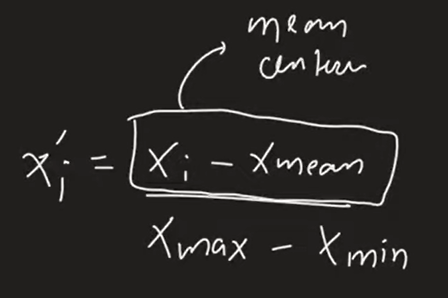 mean
center
x'i = xi - xmean
xmax - xmin